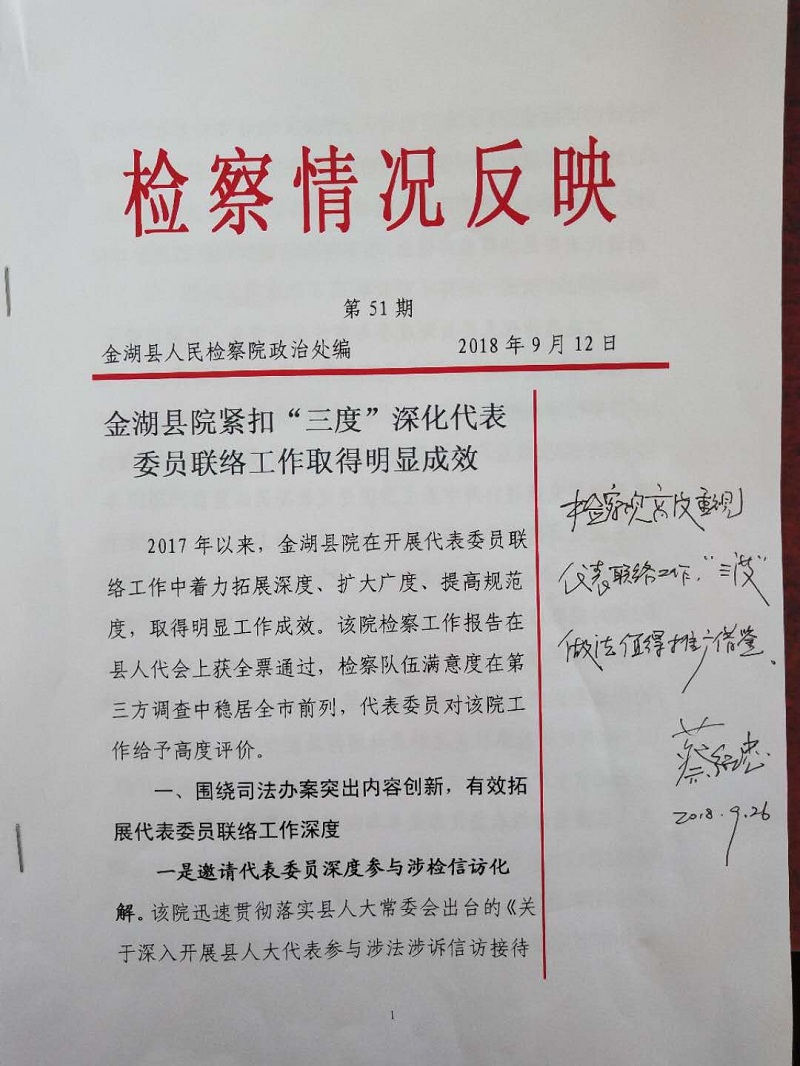 检察情况反映
第 51 期
金湖县人民检察院政治处编 2018 年 9 月 12 日
金湖县院紧扣“三度”深化代表
委员联络工作取得明显成效
2017 年以来，金湖县院在开展代表委员联
络工作中着力拓展深度、扩大广度、提高规范
度，取得明显工作成效。该院检察工作报告在
县人代会上获全票通过，检察队伍满意度在第
三方调查中稳居全市前列，代表委员对该院工
作给予高度评价。
一、围绕司法办案突出内容创新，有效拓
展代表委员联络工作深度
一是邀请代表委员深度参与涉检信访化
解。该院迅速贯彻落实县人大常委会出台的《关
于深入开展县人大代表参与涉法涉诉信访接待
1
检察院高度重视
代表联络工作，“三度”
做法值得推广借鉴。
蔡
2018.9.26